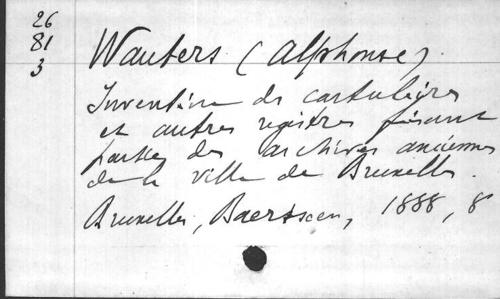 26
81
3
Wauters (Alphonse).
Inventaire des cartulaires
et autres registres faisant
partie des archives anciennes
de la ville de Bruxelles.
Bruxelles, Baertsoen, 1888, 8°